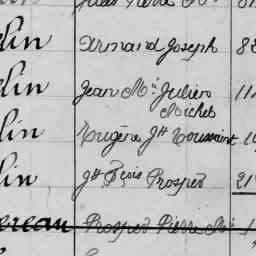 lin Armand Joseph 8
lin Jean M. Julien
Michel 11
lin Eugène Jh Toussaint 1
lin Jh Fçois Prosper 21
ereau Prosper Pierre M.